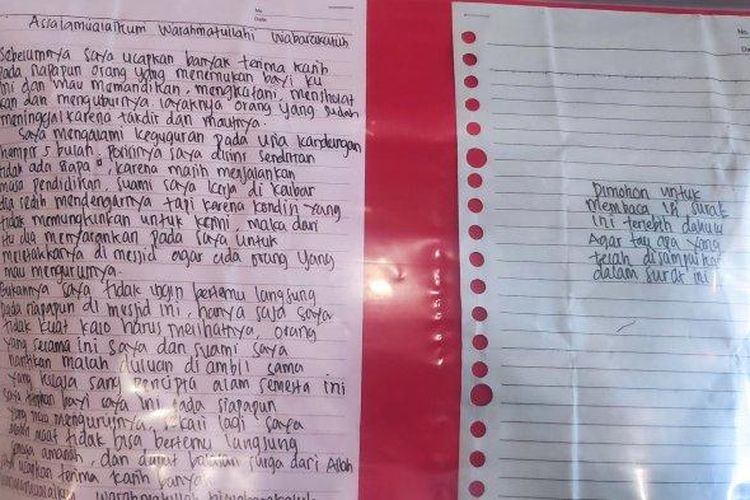 No
Date
Assalamualaikum Warahmatullahi Wabarakatuh
Sebelumnya saya ucapkan banyak terima kasih
pada siapapun orang yang menemukan bayi ku
ini dan mau memandikan, mengkafani, mensholat
kan dan menguburnya layaknya orang yang sudah
meninggal karena takdir dan mautnya.
Saya mengalami keguguran pada usia kandungan
hampir 5 bulan. Posisinya saya disini sendirian
tidak ada siapa", karena masih menjalankan
masa pendidikan, suami saya kerja di Kalbar
dia sedih mendengarnya tapi karena kondisi yang
tidak memungkinkan untuk kami, maka dari
itu dia menyarankan pada saya untuk
meletakkannya di mesjid agar ada orang yang
mau mengurusnya.
Bukannya saya tidak ingin bertemu langsung
pada siapapun di mesjid ini, hanya saja saya
tidak kuat kalo harus melihatnya, orang
yang selama ini saya dan suami saya
nantikan malah duluan di ambil sama
yang kuasa sang pencipta alam semesta ini
saya bayi saya ini pada siapapun
yang mau mengurusnya, sekali lagi saya
maaf tidak bisa bertemu langsung
amanah, dan dapat balasan surga dari Allah
ucapkan terima kasih banyak.
No.
Dimohon untuk
membaca isi surat
ini terlebih dahulu
Agar tau apa yang
telah disampaikan
dalam surat ini